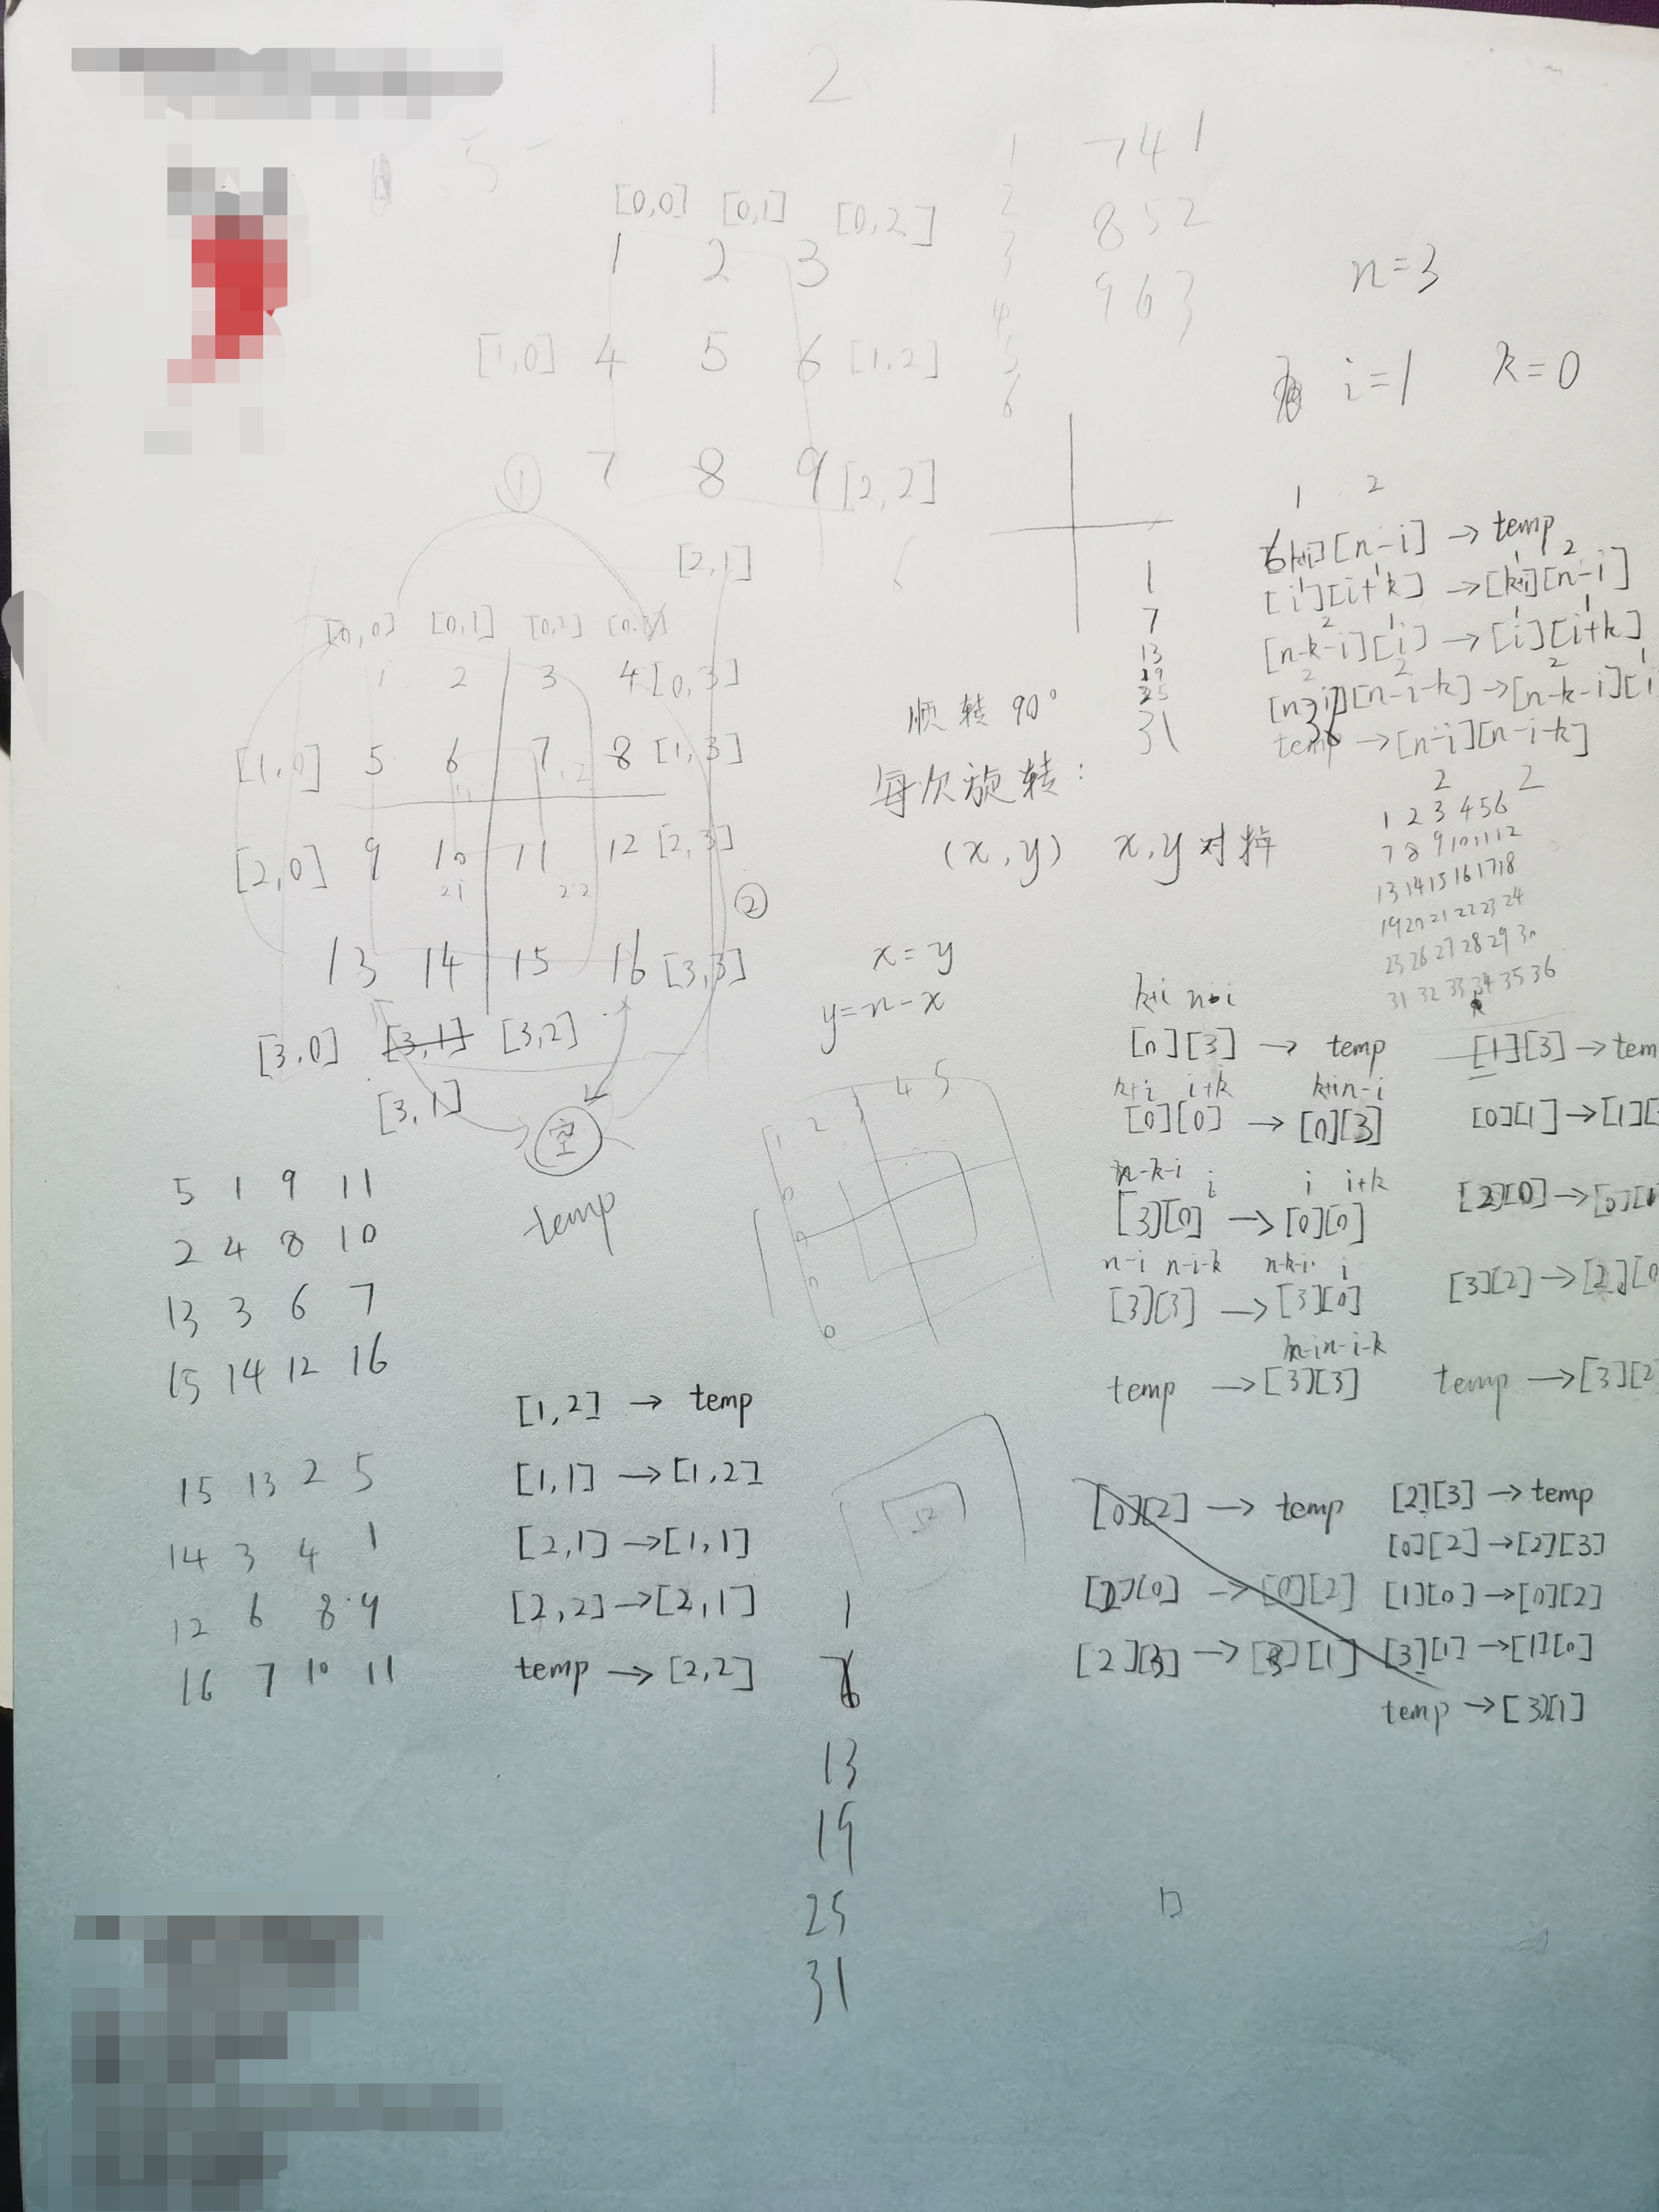 1 2
5 -
1 7 4 1
2 8 5 2
3 9 6 3
4
5
6
[0,0] [0,1] [0,2]
1 2 3
[1,0] 4 5 6 [1,2]
7 8 9 [2,2]
[2,1]
n=3
i=1 k=0
①
[0,0] [0,1] [0,2]
1 2 3 4 [0,3]
[1,0] 5 6 7 8 [1,3]
[2,0] 9 10 11 12 [2,3]
21 22
②
13 14 15 16 [3,3]
[3,0] [3,1] [3,2]
[3,1]
空
temp
1 2
[n-i] → temp
[i][i+k] → [k+i][n-i]
[n-k-i][i] → [i][i+k]
[n-i][n-i-k] → [n-k-i][i
temp → [n-i][n-i-k]
2 2
1
7
13
19
25
31
顺转90°
每次旋转:
(x,y) x,y对掉
x=y
y=n-x
1 2 3 4 5 6
7 8 9 10 11 12
13 14 15 16 17 18
19 20 21 22 23 24
25 26 27 28 29 30
31 32 33 34 35 36
k+i n-i
[0][3] → temp
k+i i+k k+i n-i
[0][0] → [0][3]
n-k-i i i i+k
[3][0] → [0][0]
n-i n-i-k n-k-i i
[3][3] → [3][0]
n-i n-i-k
temp → [3][3]
[1][3] → tem
[0][1] → [1][
[2][0] → [0][
[3][2] → [2][0
temp → [3][2
1 2 3 4 5
5 1 9 11
2 4 8 10
13 3 6 7
15 14 12 16
15 13 2 5
14 3 4 1
12 6 8 9
16 7 10 11
[1,2] → temp
[1,1] → [1,2]
[2,1] → [1,1]
[2,2] → [2,1]
temp → [2,2]
1
13
19
25
31
[0][2] → temp
[0] → [0][2]
[2][3] → [3][1]
[2][3] → temp
[0][2] → [2][3]
[1][0] → [0][2]
[3][1] → [1][0]
temp → [3][1]